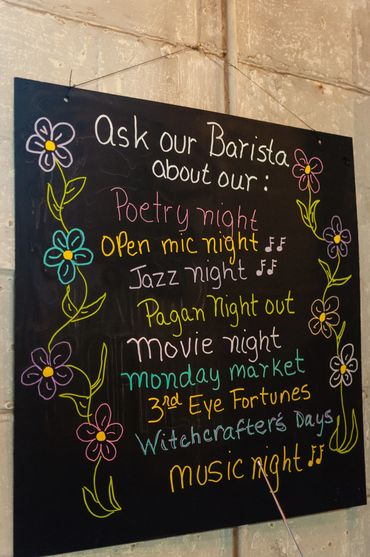 Ask our Barista
about our:
Poetry night
Open mic night
Jazz night
Pagan Night out
Movie night
monday market
3rd Eye Fortunes
Witchcrafter's Days
music night